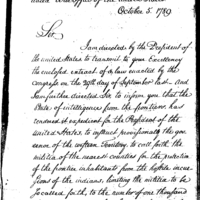 October 5. 1789
Sir,
I am directed by the President of
the United States to transmit to your Excellency
the enclosed extract of a law enacted by the
Congress on the 29th day of September last. And
I am further directed Sir to inform you that the
State of intelligence from the frontiers has
rendered it expedient for the President of the
United States to empower the
of the western Territory to call forth the
militia of the nearest counties for the protection
of the frontier inhabitants from the hostile incur-
sions of the indians, limiting the militia to be
so called forth, to the number of one thousand